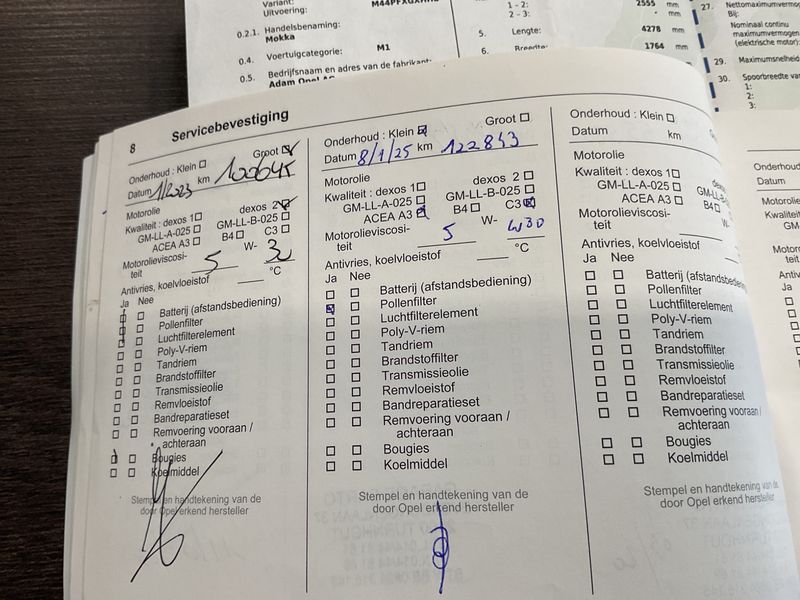 Variant:
Uitvoering:
0.2.1. Handelsbenaming:
Mokka
0.4. Voertuigcategorie: M1
0.5. Bedrijfsnaam en adres van de fabrikant:
Adam Opel AG
1 - 2:
2 - 3:
2555 mm
- mm
5. Lengte: 4278 mm
6. Breedte: 1764 mm
27. Nettomaximumvermog
Bij:
Nominaal continu
maximumvermogen
(elektrische motor):
29. Maximumsnelheid
30. Spoorbreedte va
1:
2:
3:
8 Servicebevestiging
Onderhoud : Klein Groot
Datum 1/2023 km 100645
Motorolie
Kwaliteit : dexos 1 dexos 2
GM-LL-A-025 GM-LL-B-025
ACEA A3 B4 C3
Motorolieviscosi-
teit 5 W- 30
Antivries, koelvloeistof °C
Ja Nee
Batterij (afstandsbediening)
Pollenfilter
Luchtfilterelement
Poly-V-riem
Tandriem
Brandstoffilter
Transmissieolie
Remvloeistof
Bandreparatieset
Remvoering vooraan /
achteraan
Bougies
Koelmiddel
Stempel en handtekening van de
door Opel erkend hersteller
Onderhoud : Klein Groot
Datum 8/1/25 km 122843
Motorolie
Kwaliteit : dexos 1 dexos 2
GM-LL-A-025 GM-LL-B-025
ACEA A3 B4 C3
Motorolieviscosi-
teit 5 W- W30
Antivries, koelvloeistof °C
Ja Nee
Batterij (afstandsbediening)
Pollenfilter
Luchtfilterelement
Poly-V-riem
Tandriem
Brandstoffilter
Transmissieolie
Remvloeistof
Bandreparatieset
Remvoering vooraan /
achteraan
Bougies
Koelmiddel
Stempel en handtekening van de
door Opel erkend hersteller
Onderhoud : Klein
Datum km
Motorolie
Kwaliteit : dexos 1 dexos
GM-LL-A-025 GM-LL-B
ACEA A3 B4
Motorolieviscosi-
teit W-
Antivries, koelvloeistof
Ja Nee
Batterij (afstandsbediening)
Pollenfilter
Luchtfilterelement
Poly-V-riem
Tandriem
Brandstoffilter
Transmissieolie
Remvloeistof
Bandreparatieset
Remvoering vooraan /
achteraan
Bougies
Koelmiddel
Stempel en handtekening v
door Opel erkend herstelle
Onderhoud
Datum
Motorolie
Kwaliteit
GM-LL
ACE
Motoro
teit
Antivr
Ja N